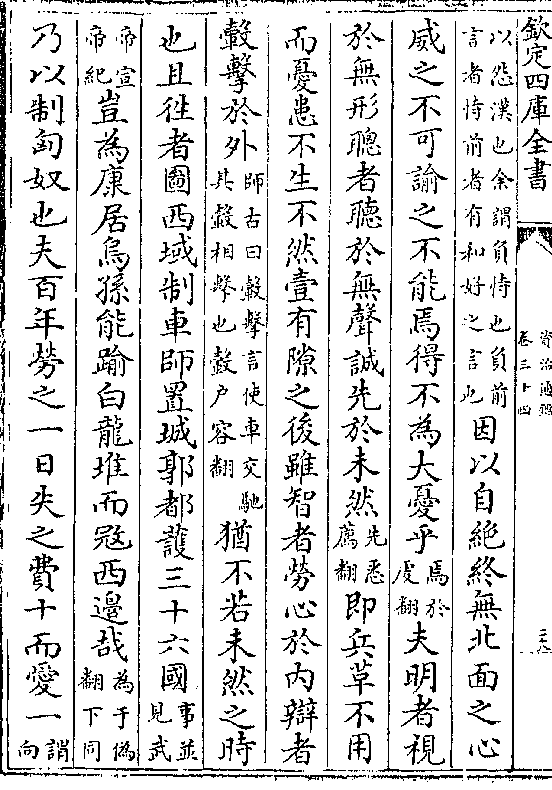 欽定四庫全書
資治通鑑
卷三十四
以怨漢也余謂負恃也負前
言者恃前者有和好之言也
因以自絶終無北面之心
威之不可諭之不能焉得不為大憂乎
焉於
䖍翻
夫明者視
於無形聰者聽於無聲誠先於未然
先悉
薦翻
即兵革不用
而憂患不生不然壹有隙之後雖智者勞心於内辯者
轂擊於外
師古曰轂擊言使車交馳
其轂相擊也轂户容翻
猶不若未然之時
也且徃者圖西域制車師置城郭都護三十六國
事並
見武
帝宣
帝紀
豈為康居烏孫能踰白龍堆而冦西邊哉
為于偽
翻下同
乃以制匈奴也夫百年勞之一日失之費十而愛一
謂
向